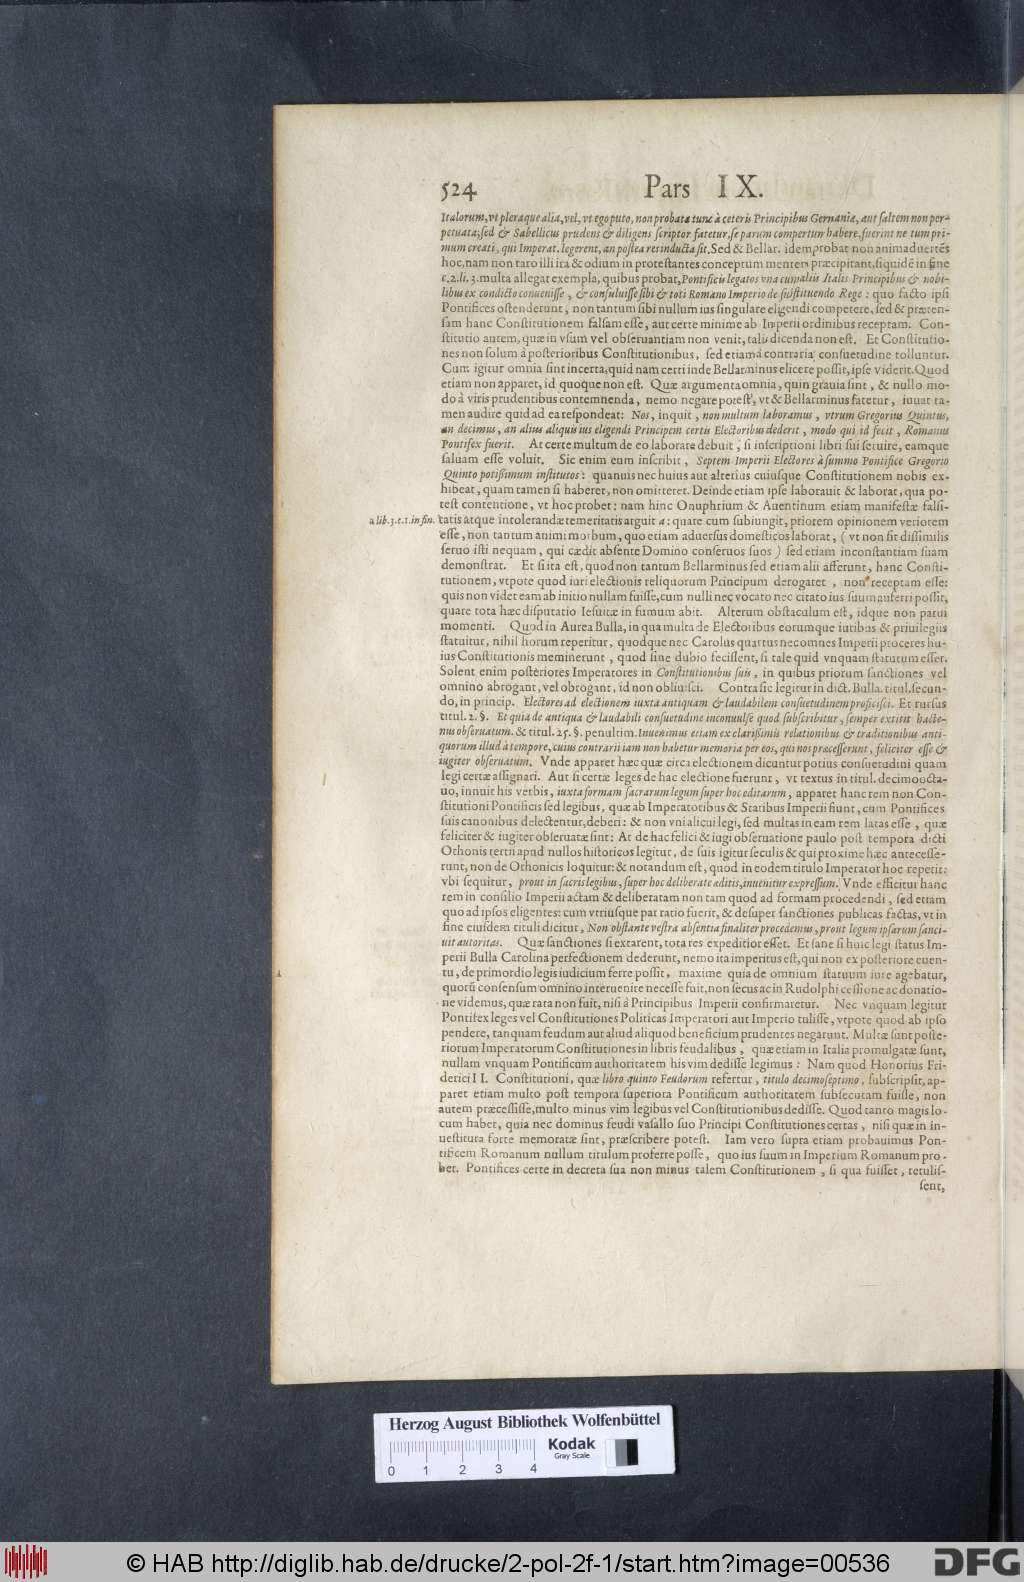 524 Pars IX.
Italorum, vt pleraque alia, vel, vt ego puto, non probata tunc à ceteris Principibus Germaniæ, aut saltem non per-
petuata; sed & Sabellicus prudens & diligens scriptor fatetur, se parum compertum habere, fuerint ne tum pri-
mum creati, qui Imperat. legerent, an postea res inducta sit. Sed & Bellar. idem probat non animaduertēs
hoc, nam non raro illi ira & odium in protestantes conceptum mentem præcipitant, siquidē in fine
c. 2. li. 3. multa allegat exempla, quibus probat, Pontificis legatos vna cum aliis Italis Principibus & nobi-
libus ex condicto conuenisse, & consuluisse sibi & toti Romano Imperio de substituendo Rege: quo facto ipsi
Pontifices ostenderunt, non tantum sibi nullum ius singulare eligendi competere, sed & præten-
sam hanc Constitutionem falsam esse, aut certe minime ab Imperii ordinibus receptam. Con-
stitutio autem, quæ in vsum vel obseruantiam non venit, talis dicenda non est. Et Constitutio-
nes non solum à posterioribus Constitutionibus, sed etiam à contraria consuetudine tolluntur.
Cum igitur omnia sint incerta, quid nam certi inde Bellarminus elicere possit, ipse viderit. Quod
etiam non apparet, id quoque non est. Quæ argumenta omnia, quin grauia sint, & nullo mo-
do à viris prudentibus contemnenda, nemo negare potest, vt & Bellarminus fatetur, iuuat ta-
men audire quid ad ea respondeat: Nos, inquit, non multum laboramus, vtrum Gregorius Quintus,
an decimus, an alius aliquis ius eligendi Principem certis Electoribus dederit, modo qui id fecit, Romanus
Pontifex fuerit. At certe multum de eo laborare debuit, si inscriptioni libri sui seruire, eamque
saluam esse voluit. Sic enim eum inscribit, Septem Imperii Electores à summo Pontifice Gregorio
Quinto potissimum institutos: quanuis nec huius aut alterius cuiusque Constitutionem nobis ex-
hibeat, quam tamen si haberet, non omitteret. Deinde etiam ipse laborauit & laborat, qua po-
test contentione, vt hoc probet: nam hinc Onuphrium & Auentinum etiam manifestæ falsi-
a lib. 3. c. 1. in fin. tatis atque intolerandæ temeritatis arguit a: quare cum subiungit, priorem opinionem veriorem
esse, non tantum animi morbum, quo etiam aduersus domesticos laborat, (vt non sit dissimilis
seruo isti nequam, qui cædit absente Domino conseruos suos) sed etiam inconstantiam suam
demonstrat. Et si ita est, quod non tantum Bellarminus sed etiam alii afferunt, hanc Consti-
tutionem, vtpote quod iuri electionis reliquorum Principum derogaret, non receptam esse:
quis non videt eam ab initio nullam fuisse, cum nulli nec vocato nec citato ius suum auferri possit,
quare tota hæc disputatio Iesuitæ in fumum abit. Alterum obstaculum est, idque non parui
momenti. Quod in Aurea Bulla, in qua multa de Electoribus eorumque iuribus & priuilegiis
statuitur, nihil horum reperitur, quodque nec Carolus quartus nec omnes Imperii proceres hu-
ius Constitutionis meminerunt, quod sine dubio fecissent, si tale quid vnquam statutum esset.
Solent enim posteriores Imperatores in Constitutionibus suis, in quibus priorum sanctiones vel
omnino abrogant, vel obrogant, id non obliuisci. Contra sic legitur in dict. Bulla. titul. secun-
do, in princip. Electores ad electionem iuxta antiquam & laudabilem consuetudinem proficisci. Et rursus
titul. 2. §. Et quia de antiqua & laudabili consuetudine inconuulse quod subscribitur, semper extitit hacte-
nus obseruatum. & titul. 25. §. penultim. Inuenimus etiam ex clarissimis relationibus & traditionibus anti-
quorum illud à tempore, cuius contrarii iam non habetur memoria per eos, qui nos præcesserunt, feliciter esse &
iugiter obseruatum. Vnde apparet hæc quæ circa electionem dicuntur potius consuetudini quam
legi certæ assignari. Aut si certæ leges de hac electione fuerunt, vt textus in titul. decimoocta-
uo, innuit his verbis, iuxta formam sacrarum legum super hoc editarum, apparet hanc rem non Con-
stitutioni Pontificis sed legibus, quæ ab Imperatoribus & Statibus Imperii fiunt, cum Pontifices
suis canonibus delectentur, deberi: & non vni alicui legi, sed multas in eam rem latas esse, quæ
feliciter & iugiter obseruatæ sint: At de hac felici & iugi obseruatione paulo post tempora dicti
Othonis tertii apud nullos historicos legitur, de suis igitur seculis & qui proxime hæc antecesse-
runt, non de Othonicis loquitur: & notandum est, quod in eodem titulo Imperator hoc repetit:
vbi sequitur, prout in sacris legibus, super hoc deliberate æditis, inuenitur expressum. Vnde efficitur hanc
rem in consilio Imperii actam & deliberatam non tam quod ad formam procedendi, sed etiam
quo ad ipsos eligentes: cum vtriusque par ratio fuerit, & desuper sanctiones publicas factas, vt in
fine eiusdem tituli dicitur, Non obstante vestra absentia finaliter procedemus, prout legum ipsarum sanci-
uit autoritas. Quæ sanctiones si extarent, tota res expeditior esset. Et sane si huic legi status Im-
perii Bulla Carolina perfectionem dederunt, nemo ita imperitus est, qui non ex posteriore euen-
tu, de primordio legis iudicium ferre possit, maxime quia de omnium statuum iure agebatur,
quorū consensum omnino interuenire necesse fuit, non secus ac in Rudolphi cessione ac donatio-
ne videmus, quæ rata non fuit, nisi à Principibus Imperii confirmaretur. Nec vnquam legitur
Pontifex leges vel Constitutiones Politicas Imperatori aut Imperio tulisse, vtpote quod ab ipso
pendere, tanquam feudum aut aliud aliquod beneficium prudentes negarunt. Multæ sunt poste-
riorum Imperatorum Constitutiones in libris feudalibus, quæ etiam in Italia promulgatæ sunt,
nullam vnquam Pontificum authoritatem his vim dedisse legimus: Nam quod Honorius Fri-
derici II. Constitutioni, quæ libro quinto Feudorum refertur, titulo decimoseptimo, subscripsit, ap-
paret etiam multo post tempora superiora Pontificum authoritatem subsecutam fuisse, non
autem præcessisse, multo minus vim legibus vel Constitutionibus dedisse. Quod tanto magis lo-
cum habet, quia nec dominus feudi vasallo suo Principi Constitutiones certas, nisi quæ in in-
uestitura forte memoratæ sint, præscribere potest. Iam vero supra etiam probauimus Pon-
tificem Romanum nullum titulum proferre posse, quo ius suum in Imperium Romanum pro-
bet. Pontifices certe in decreta sua non minus talem Constitutionem, si qua fuisset, retulis-
sent,
Herzog August Bibliothek Wolfenbüttel
Kodak
Gray Scale
0 1 2 3 4
© HAB http://diglib.hab.de/drucke/2-pol-2f-1/start.htm?image=00536
DFG